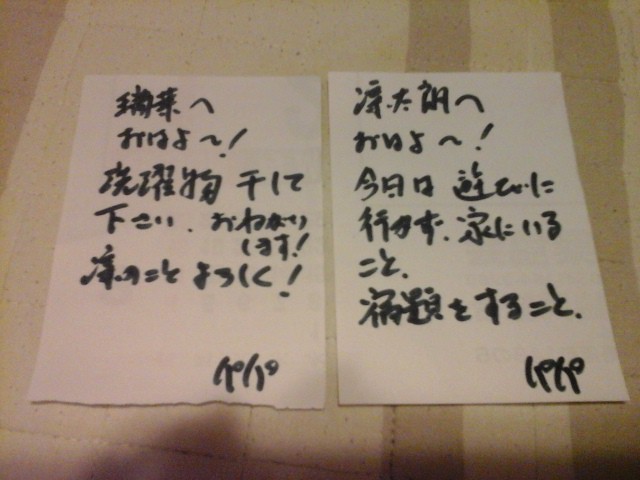 瑞菜へ
おはよ〜!
洗濯物 干して
下さい、おねがい
します!
凉のこと よろしく!
パパ
凉太朗へ
おはよ〜!
今日は 遊びに
行かず、家にいる
こと、
宿題をすること、
パパ